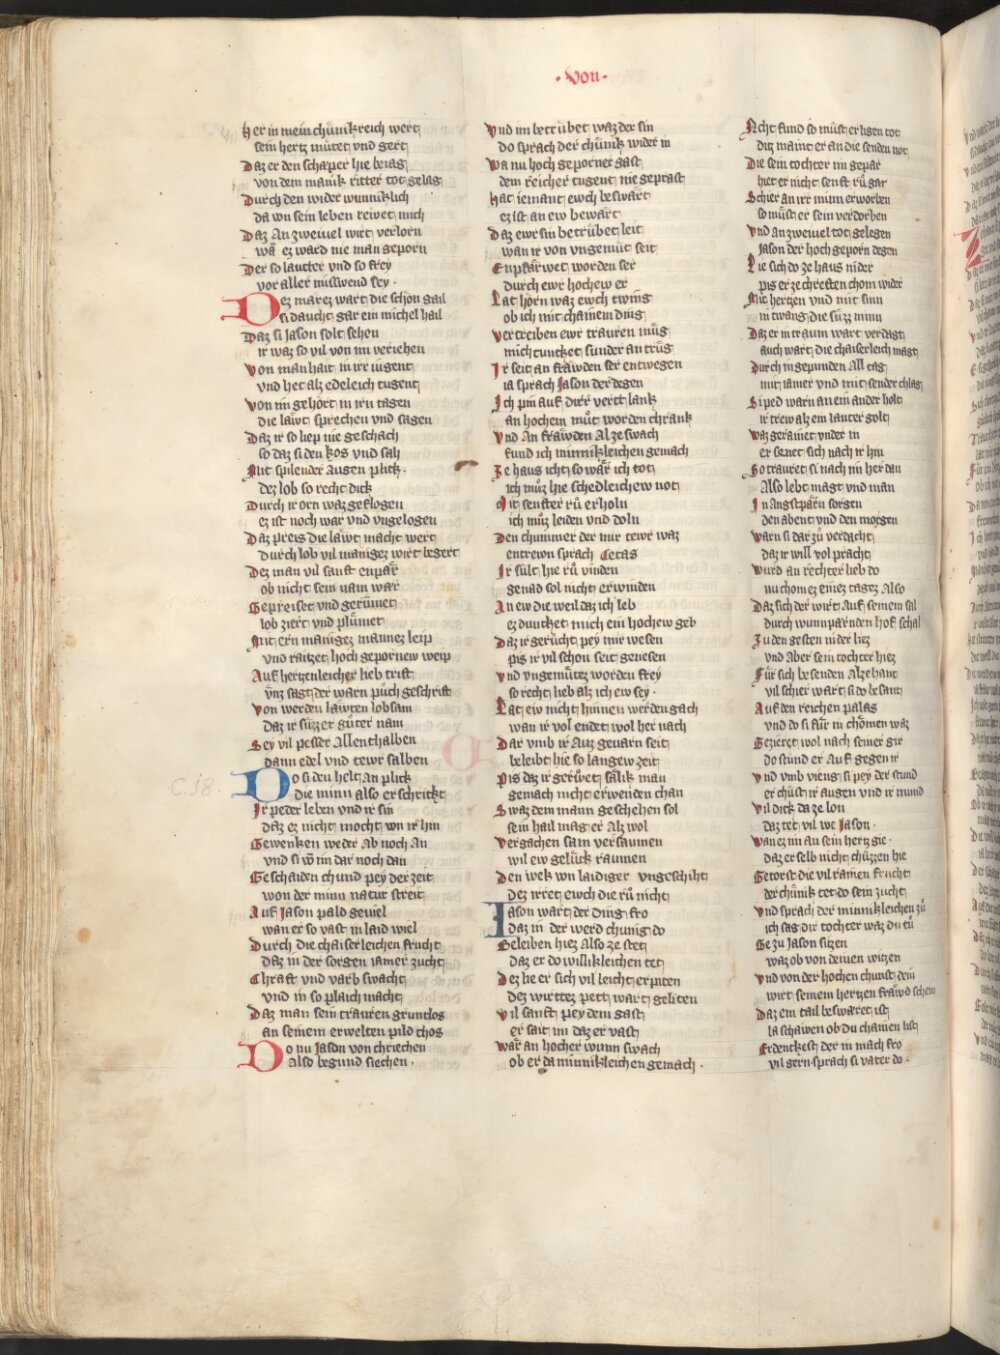 · Von ·
Her in mein chünikreich wert
sein hertz mütet vnd gert
Daz er den schaper hie beiag
von dem manik ritter tot gelag
Durch den wider wunniklich
da von sein leben reivet mich
Daz an zweiuel wirt verlorn
wā ez ward nie man geporn
Der so lauter vnd so frey
vor aller misswend sey ·
Dez marez wart die schön gail
si daucht gar ein michel hail
Daz si Jason solt sehen
ir waz so vil von im veriehen
Von manhait in ir iugent
vnd het alz edeleich tugent
Von im gehort in irn tagen
die läwt sprechen vnd sagen
Daz ir so liep nie geschach
so daz si den kos vnd sah
Mit spilender augen plick
dez lob so recht dick
Durch ir orn waz geflogen
ez ist noch war vnd vngelogen
Daz preis die läwt macht wert
durch lob vil manigez wirt begert
Dez man vil sanft enpär
ob nicht sein nam wär
Gepreiset vnd gerümet
lob ziert vnd plümet
Mit ern manigez mannez leip
vnd raitzet hoch gepornew weip
Auf hertzenleicher lieb trist
vnz sagt der warn püch geschrift
Von werden läwten lobsam
daz ir süzzer güter nam
Sey vil pesser allenthalben
dann edel vnd tewr salben
Do si den helt an plick
die minn also erschricket
Ir peder leben vnd ir sin
daz ez nicht mocht von ir hin
Gewenken weder ab noch an
vnd si von im dar noch dan
Geschaiden chund pey der zeit
won der minn natur streit
Auf Jason pald geuiel
wan er so vast in laid wiel
Durch die chaiserleichen frucht
daz in der sorgen iamer zucht
Chraft vnd varb swacht
vnd in so plaich macht
Daz man sein trauren gruntlos
an seinem erwelten pild chos
Do nu Jason von chriechen
also begund siechen ·
Vnd im betrübet waz der sin
do sprach der chünik wider in
Wa nu hoch geporner gast
dem reicher tugent nie geprast
Hat iemant ewch beswärt
ez ist an ew bewärt
Daz ewr sin betrübet leit
wan ir von vngemüt seit
Enpfärwet worden ser
durch ewr hochew er
Lat horn waz ewch twing
ob ich mit chainem ding
Vertreiben ewr trauren müg
mich duncket sunder an trüg
Ir seit an fräwden ser entwegen
ia sprach Jason der degen
Ich pin auf dirr vert lank
an hochem müt worden chrank
Vnd an fräwden al ze swach
fund ich minnikleichen gemach
Ze haus icht so wär ich tot
ich müz hie schedleichew not
Mit senfter rü erholn
ich müz leiden vnd doln
Den chummer der mir tewr waz
entrewn sprach Cetas
Ir sült hie rü vinden
genad sol nicht erwinden
An ew die weil daz ich leb
ez duncket mich ein hochew geb
Daz ir gerücht pey mir wesen
pis ir vil schon seit genesen
Vnd vngemütez worden frey
so recht lieb alz ich ew sey ·
Lat ew nicht hinnen werden gach
wan ir vol endet wol her nach
Dar vmb ir auz geuarn seit
beleibt hie so langew zeit
Pis daz ir gerüet sälik man
gemach nicht erwenden chan
Swaz dem mann geschehen sol
sein hail mag er alz wol
Vergachen sam versaumen
wil ew gelück raumen
Den wek von laidiger vngeschiht
dez irret ewch die rü nicht
Jason wart der ding fro
daz in der werd chünig do
Beleiben hiez also ze stet
daz er do willikleichen tet
Dez he er sich vil leicht erpiten
dez wirttez pett wart geliten
Vil sanft pey dem gast
er sait im daz er vast
Wär an hocher wunn swach
ob er da minnikleichen gemach ·
Nicht fund so müst er ligen tot
ditz maint er an die senden not
Die sein tochter im gepar
hiet er nicht senft rü gar
Schier an irr minn erworben
so müst er sein verdorben
Vnd an zweiuel tot gelegen
Jason der hochgeporn degen
Lie sich do ze haus nider
pis er ze chreften chom wider
Mit hertzen vnd mit sinn
in twang die süzz minn
Daz er in traum wart verdagt
auch wart die chaiserleich magt
Durch in gepunden all tag
mit iamer vnd mit sender chlag
Si ped warn an ein ander holt
ir trew alz ein lauter golt
Waz gerainet vnder in
er senet sich nach ir hin
So trauret si nach im her dan
also lebt magt vnd man
In angstpärn sorgen
den abent vnd den morgen
Warn si dar zü verdacht
daz ir will vol pracht
Wurd an rechter lieb do
nu chom ez eniez tagez also
Daz sich der wirt auf seinem sal
durch wunnparnden hof schal
Zu den gesten nider liez
vnd aber sein tochter hiez
Für sich besenden alzehant
vil schier wart si do besant
Auf den reichen palas
vnd do si für in chömen waz
Gezieret wol nach seiner gir
do stünd er auf gegen ir
Vnd vmb vieng si pey der stund
er chüst ir augen vnd ir mund
Vil dick da ze lon
daz tet vil we Jason ·
Wan ez im an sein hertz gie ·
daz er selb nicht chüzzen hie
Getorst die vil rainen frucht
der chünik tet do sein zucht
Vnd sprach der minnikleichen zü
ich sag dir tochter waz du tü
Ge zu Jason sitzen
waz ob von deinen witzen
Vnd von der hochen chunst dein
wirt seinem hertzen fräwd schein
Daz ein tail beswäret ist
la schawen ob du chainen list
Erdenckest der in mach fro
vil gern sprach si vater do ·
C. 18.